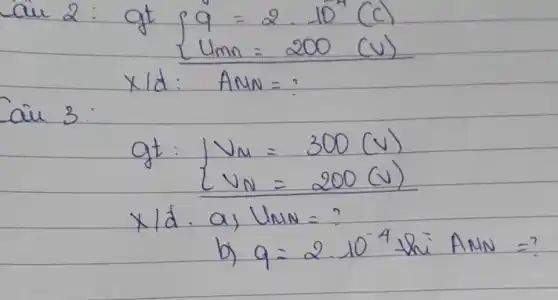 Câu 2: gt { q = 2. 10⁻⁴ (C)
UMN = 200 (V)
x/đ: AMN = ?
Câu 3:
gt: { VM = 300 (V)
VN = 200 (V)
x/đ. a, UMN = ?
b) q = 2. 10⁻⁴ thì AMN = ?